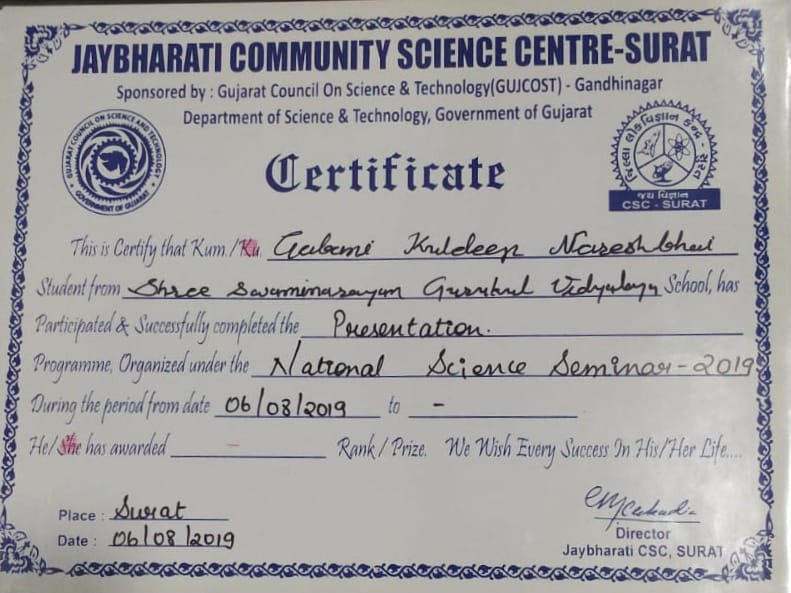 JAYBHARATI COMMUNITY SCIENCE CENTRE-SURAT
Sponsored by : Gujarat Council On Science & Technology(GUJCOST) - Gandhinagar
Department of Science & Technology, Government of Gujarat
GUJARAT COUNCIL ON SCIENCE AND TECHNOLOGY
GOVERNMENT OF GUJARAT
Certificate
જિલ્લા લોક વિજ્ઞાન કેન્દ્ર - સુરત
જય વિજ્ઞાન
CSC - SURAT
This is Certify that Kum./Ku. Gabani Kuldeep Nareshbhai
Student from Shree Swaminarayan Gurukul Vidyalaya School, has
Participated & Successfully completed the Presentation.
Programme, Organized under the National Science Seminar-2019
During the period from date 06/08/2019 to -
He/She has awarded - Rank / Prize. We Wish Every Success In His/Her Life....
Place : Surat
Date : 06/08/2019
Director
Jaybharati CSC, SURAT